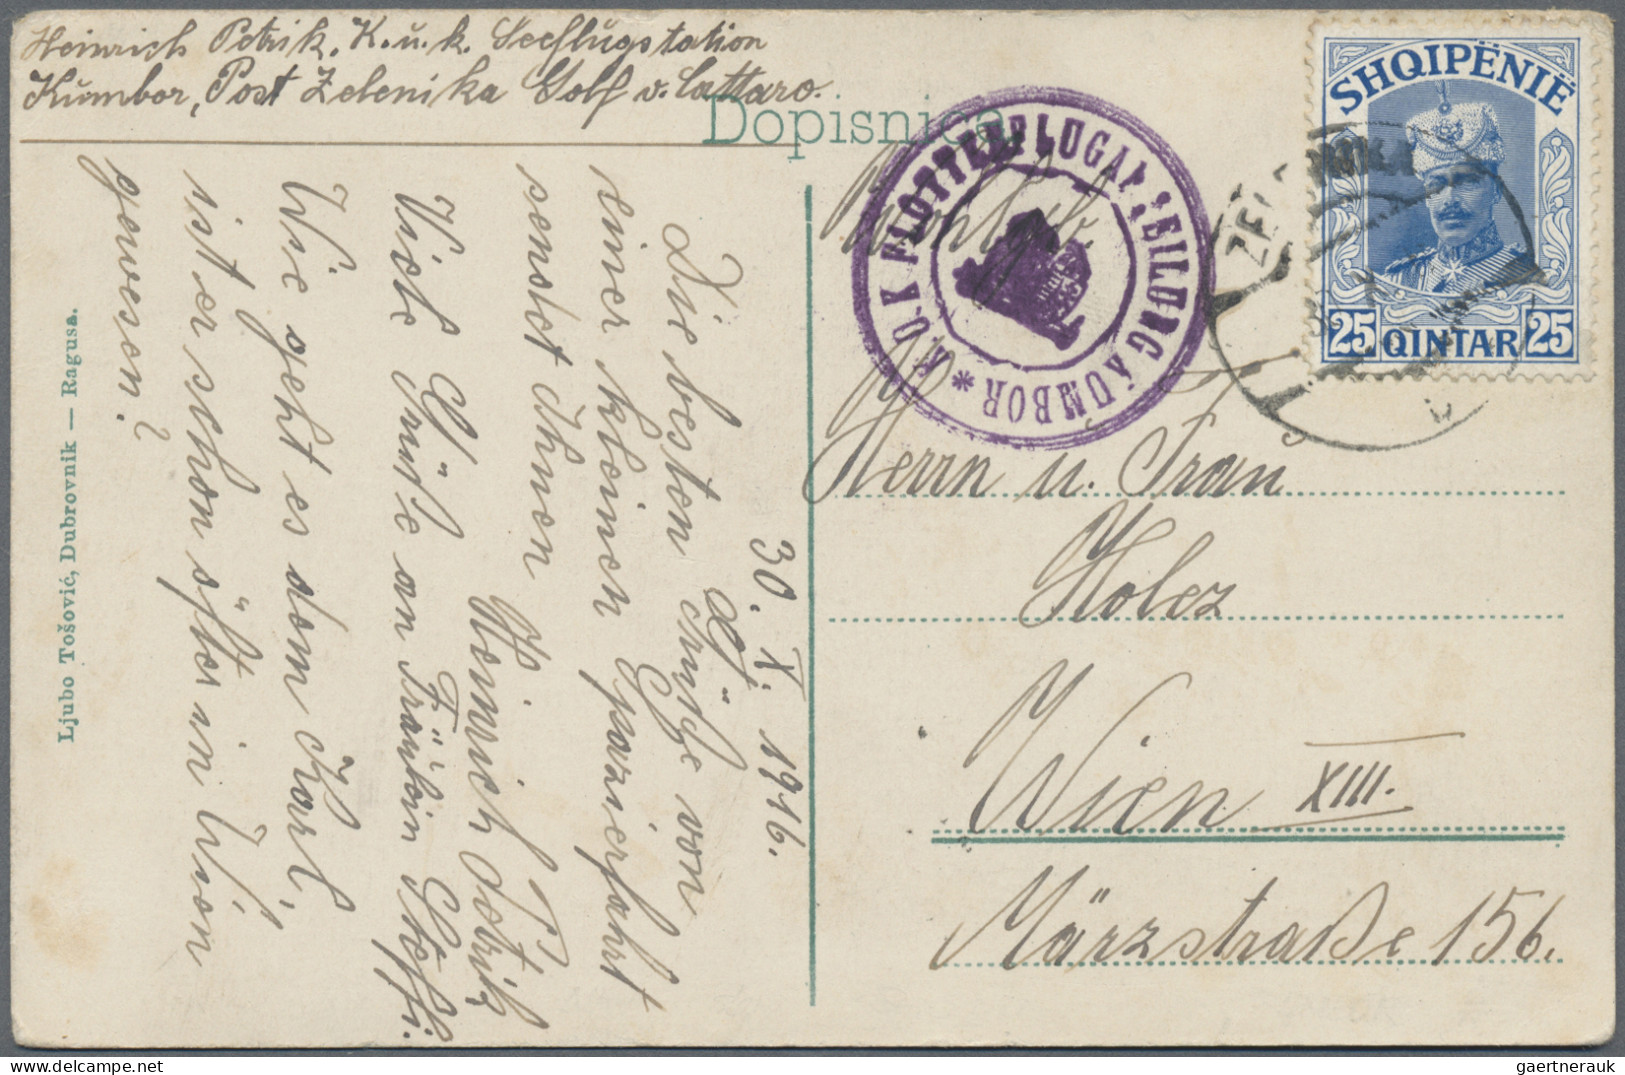 Heinrich Petrik. K.u.k. Seeflugstation
Kumbor, Post Zelenika Golf v. Cattaro.
Dopisnica
SHQIPËNIË
25 QINTAR 25
K.U.K. FLOTTENFLUGABTEILUNG KUMBOR *
30. X. 1916.
Die besten Grüße von
einer kleinen Spazierfahrt
sendet Ihnen
Heinrich Petrik
Viele Grüße an Fräulein Steffi.
Wie geht es dem Karl,
ist er schon öfter in Wien
gewesen?
Herrn u. Frau
Holez
Wien XIII.
Märzstraße 156.
Ljubo Tošović, Dubrovnik — Ragusa.
gaertnerauk